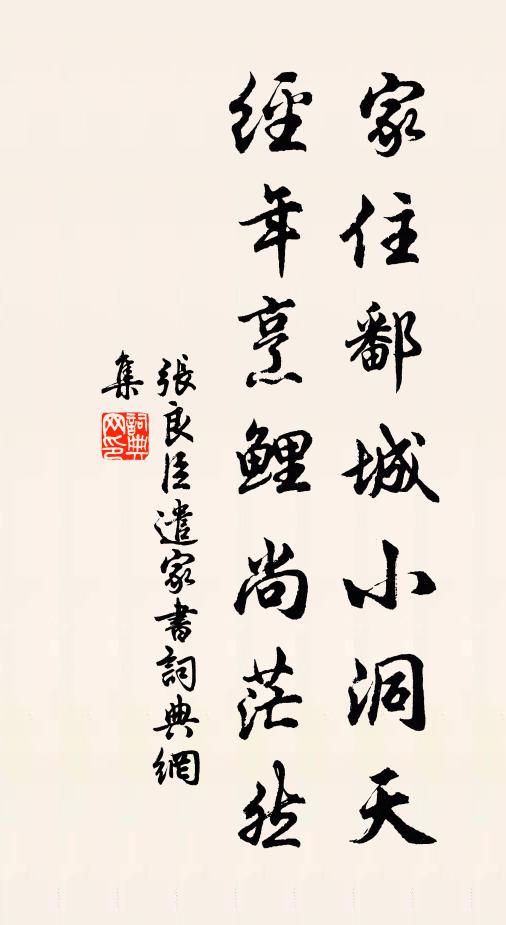 家住鄱城小洞天
經年烹鯉尚茫然
張良臣遣家書詞典網
集
詞典
网印